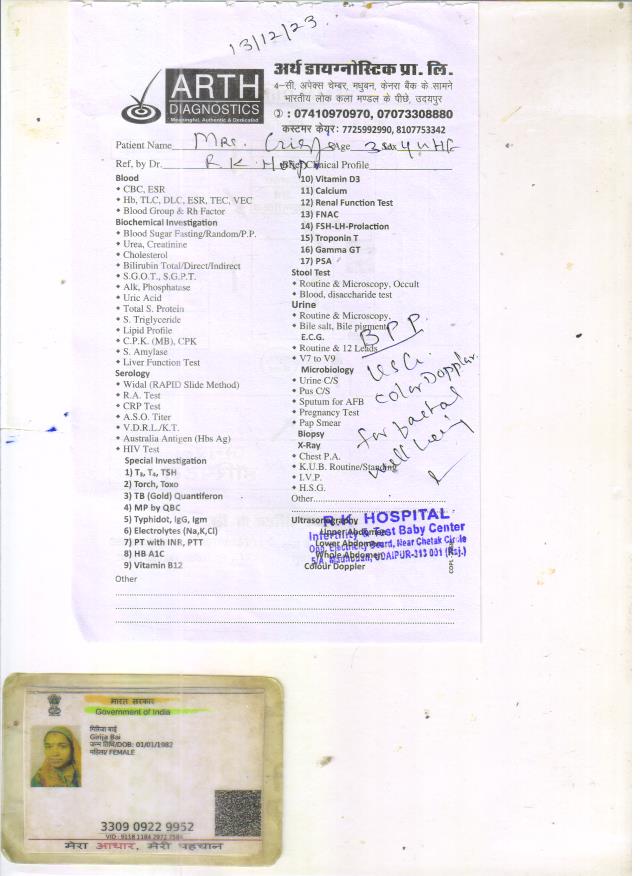 13/12/23.
ARTH
DIAGNOSTICS
Meaningful, Authentic & Dedicated
अर्थ डायग्नोस्टिक प्रा. लि.
4-सी, अपेक्स चेम्बर, मधुबन, केनरा बैंक के सामने
भारतीय लोक कला मण्डल के पीछे, उदयपुर
: 07410970970, 07073308880
कस्टमर केयर: 7725992990, 8107753342
Patient Name Mrs. Age Sex
Ref, by Dr. R K Clinical Profile
Blood
CBC, ESR
Hb, TLC, DLC, ESR, TEC, VEC
Blood Group & Rh Factor
Biochemical Investigation
Blood Sugar Fasting/Random/P.P.
Urea, Creatinine
Cholesterol
Bilirubin Total/Direct/Indirect
S.G.O.T., S.G.P.T.
Alk, Phosphatase
Uric Acid
Total S. Protein
S. Triglyceride
Lipid Profile
C.P.K. (MB), CPK
S. Amylase
Liver Function Test
Serology
Widal (RAPID Slide Method)
R.A. Test
CRP Test
A.S.O. Titer
V.D.R.L./K.T.
Australia Antigen (Hbs Ag)
HIV Test
Special Investigation
1) T₃, T₄, TSH
2) Torch, Toxo
3) TB (Gold) Quantiferon
4) MP by QBC
5) Typhidot, IgG, Igm
6) Electrolytes (Na,K,Cl)
7) PT with INR, PTT
8) HB A1C
9) Vitamin B12
Other
10) Vitamin D3
11) Calcium
12) Renal Function Test
13) FNAC
14) FSH-LH-Prolaction
15) Troponin T
16) Gamma GT
17) PSA
Stool Test
Routine & Microscopy, Occult
Blood, disaccharide test
Urine
Routine & Microscopy,
Bile salt, Bile pigment
E.C.G.
Routine & 12 Leads
V7 to V9
Microbiology
Urine C/S
Pus C/S
Sputum for AFB
Pregnancy Test
Pap Smear
Biopsy
X-Ray
Chest P.A.
K.U.B. Routine/Standing
I.V.P.
H.S.G.
Other
BPP
USG
color Dopplar
for foetal
well being
Ultrasonography
Upper Abdomen
Lower Abdomen
Whole Abdomen
Colour Doppler
R.K. HOSPITAL
Infertility & Test Baby Center
Opp. Electricity Board, Near Chetak Circle
5/A, Madhuban, UDAIPUR-313 001 (Raj.)
भारत सरकार
Government of India
गिरिजा बाई
Girija Bai
जन्म तिथि/DOB: 01/01/1982
महिला/ FEMALE
3309 0922 9952
मेरा आधार, मेरी पहचान